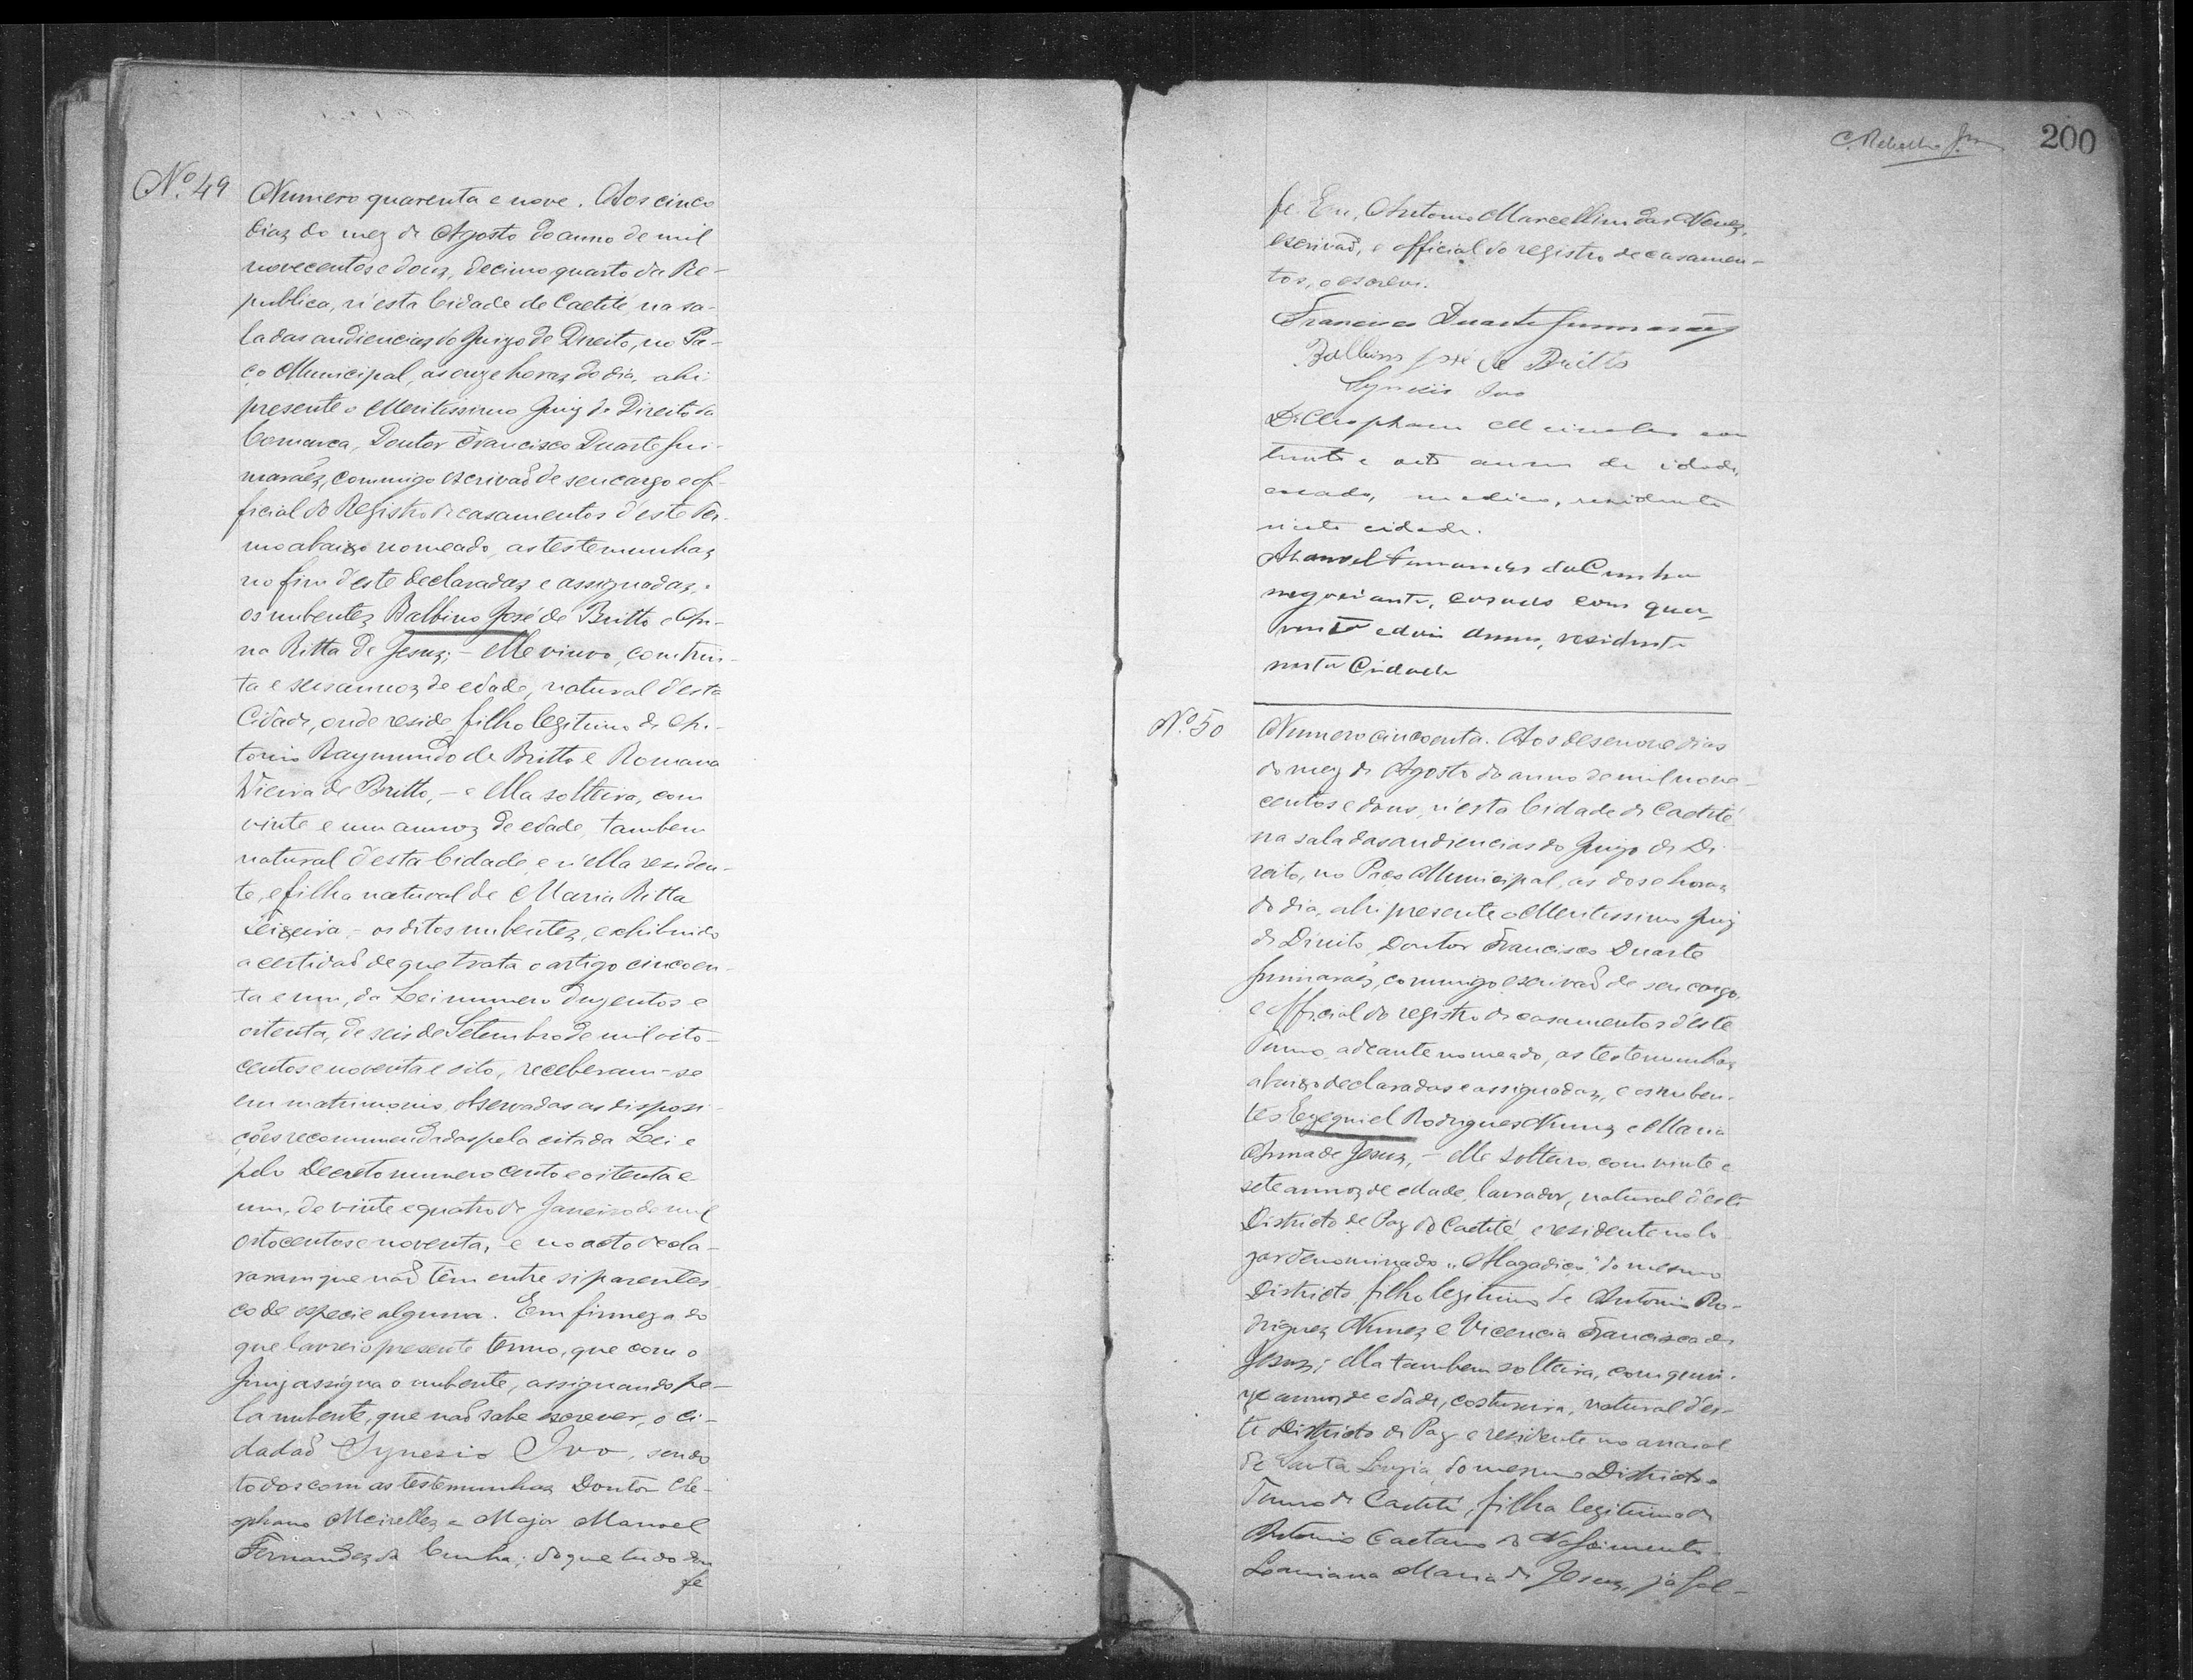 Nº 49
Numero quarenta e nove. Aos cinco
dias do mez de Agosto do anno de mil
novecentos e dous, decimo quarto da Re-
publica, n'esta Cidade de Caetité, na sa-
la das audiencias do Juizo de Direito, no Pa-
ço Municipal, as onze horas do dia, ahi
presente o Meritissimo Juiz de Direito da
Comarca, Doutor Francisco Duarte Gui-
marães, commigo escrivaõ de seu cargo e of-
ficial do Registro de casamentos d'este Ter-
mo abaixo nomeado, as testemunhas
no fim d'este declaradas e assignadas,
os nubentes Balbino José de Britto e An-
na Ritta de Jesus; - elle viuvo, com trin-
ta e seis annos de edade, natural d'esta
Cidade, onde reside, filho legitimo de An-
tonio Raymundo de Britto e Romana
Vieira de Britto, - e ella solteira, com
vinte e um annos de edade, tambem
natural d'esta Cidade, e n'ella residen-
te, e filha natural de Maria Ritta
Teixeira, - os ditos nubentes, exhibindo
a certidaõ de que trata o artigo cincoen-
ta e um, da Lei numero duzentos e
oitenta, de seis de Setembro de mil oito-
centos e noventa e oito, receberam-se
em matrimonio, observadas as disposi-
ções recommendadas pela citada Lei e
pelo Decreto numero cento e oitenta e
um, de vinte e quatro de Janeiro de mil
oitocentos e noventa, e no acto decla-
raram que naõ têm entre si parentes-
co de especie alguma. Em firmeza do
que lavrei o presente termo, que com o
Juiz assigna o nubente, assignando pe-
la nubente, que naõ sabe escrever, o ci-
dadaõ Synesio Ivo, sendo
todos com as testemunhas Doutor Cle-
ophano Meirelles e Major Manoel
Fernandes da Cunha; do que tudo dou
fé
200
fé. Eu, Antonio Marcellino das Neves,
escrivaõ, e official do registro de casamen-
tos, o escrevi.
Francisco Duarte Guimarães
Balbino José de Britto
Synesio Ivo
Dr. Cleophano Meirelles com
trinta e oito annos de idade,
casado, medico, residente
nesta cidade.
Manoel Fernandes da Cunha
negociante, casado com qua-
renta e dois annos, residente
nesta Cidade
Nº 50
Numero cincoenta. Aos desenove dias
do mez de Agosto do anno de mil nove-
centos e dous, n'esta Cidade de Caetité,
na sala das audiencias do Juizo de Di-
reito, no Paço Municipal, as dose horas
do dia, ahi presente o Meritissimo Juiz
de Direito, Doutor Francisco Duarte
Guimarães, commigo escrivaõ de seu cargo,
e official do registro de casamentos d'este
Termo, adeante nomeado, as testemunhas
abaixo declaradas e assignadas, e os nuben-
tes Ezequiel Rodrigues Nunes e Maria
Anna de Jesus, - elle solteiro, com vinte e
sete annos de edade, lavrador, natural d'este
Districto de Paz do Caetité, e residente no lo-
gar denominado "Magadiço" do mesmo
Districto, filho legitimo de Antonio Ro-
drigues Nunes e Vicencia Francisca de
Jesus; ella tambem solteira, com quin-
ze annos de edade, costureira, natural d'es-
te Districto de Paz e residente no arraial
de Santa Luzia, do mesmo Districto e
Termo de Caetité, filha legitima de
Antonio Caetano do Nascimento e
Maria de Jesus, já fal-